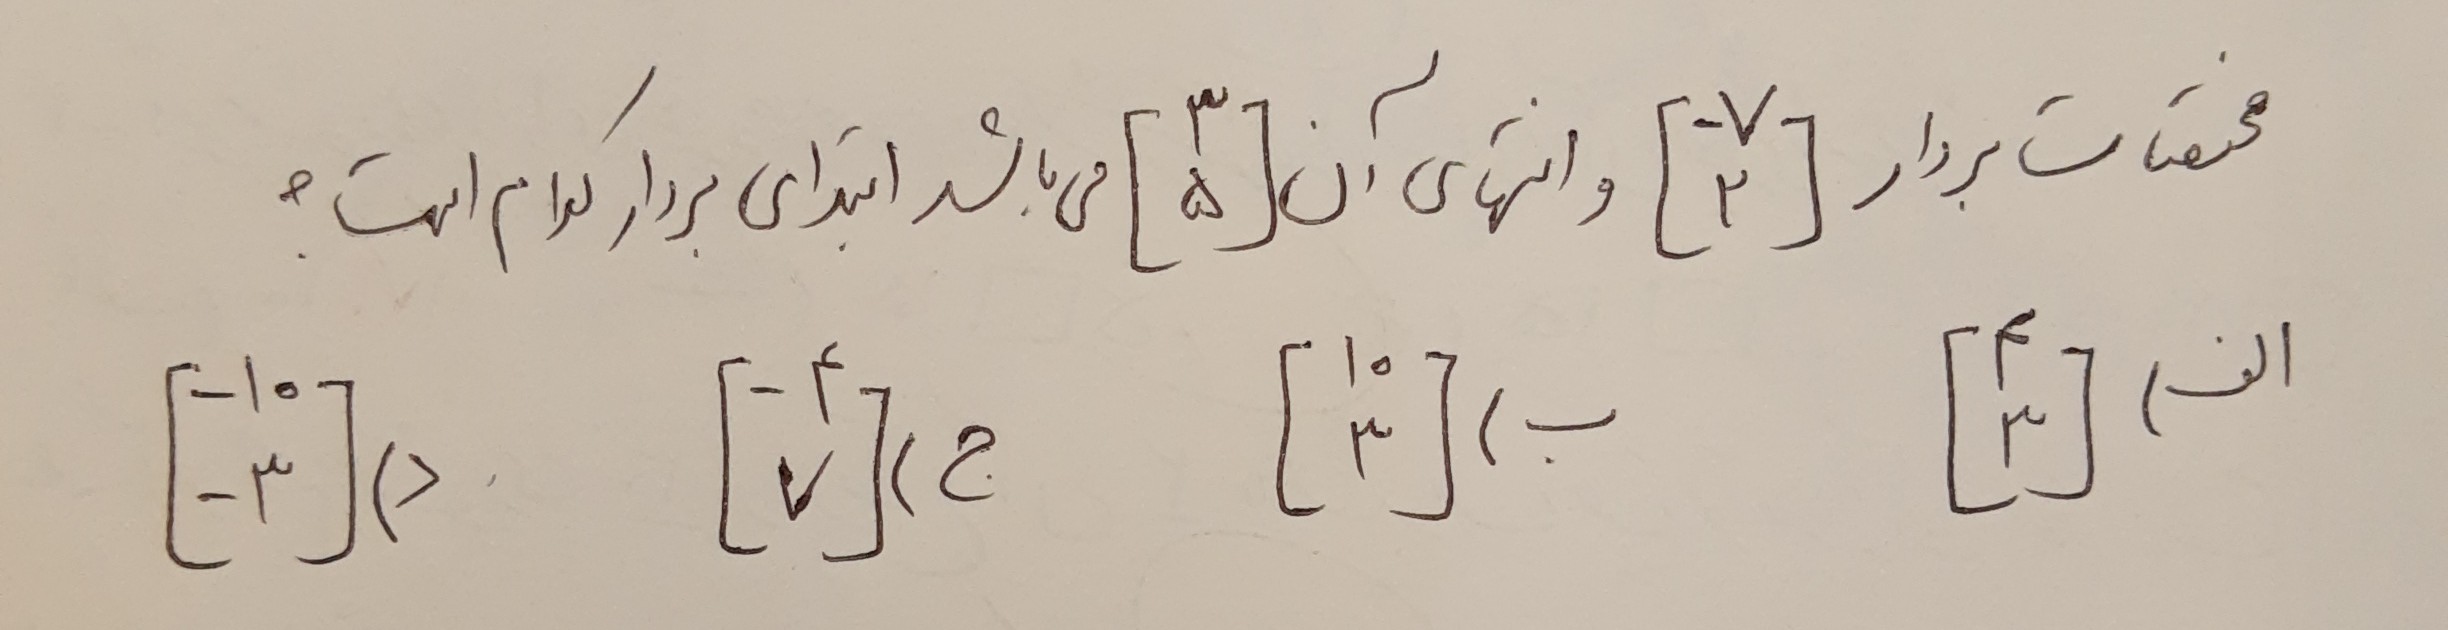 مختصات بردار [-۷ ۲] و انتهای آن [۳ ۵] می‌باشد ابتدای بردار کدام است؟
الف) [۴ ۳] ب) [۱۰ ۳] ج) [-۴ ۷] د) [-۱۰ -۳]